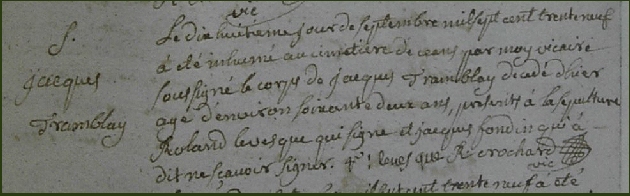 vic
S.
jacques
Tramblay
Le dix huitième jour de septembre mil sept cent trente neuf
à été inhumé au cimetiere de ceans par moy vicaire
soussigné le corps de jacques Tramblay decedé d'hier
agé d'environ soixante deux ans, presents à la sepulture
Roland levesque qui signe et jacques fondin qui à
dit ne sçavoir signer. levesque R crochard
vic
trente neuf à été